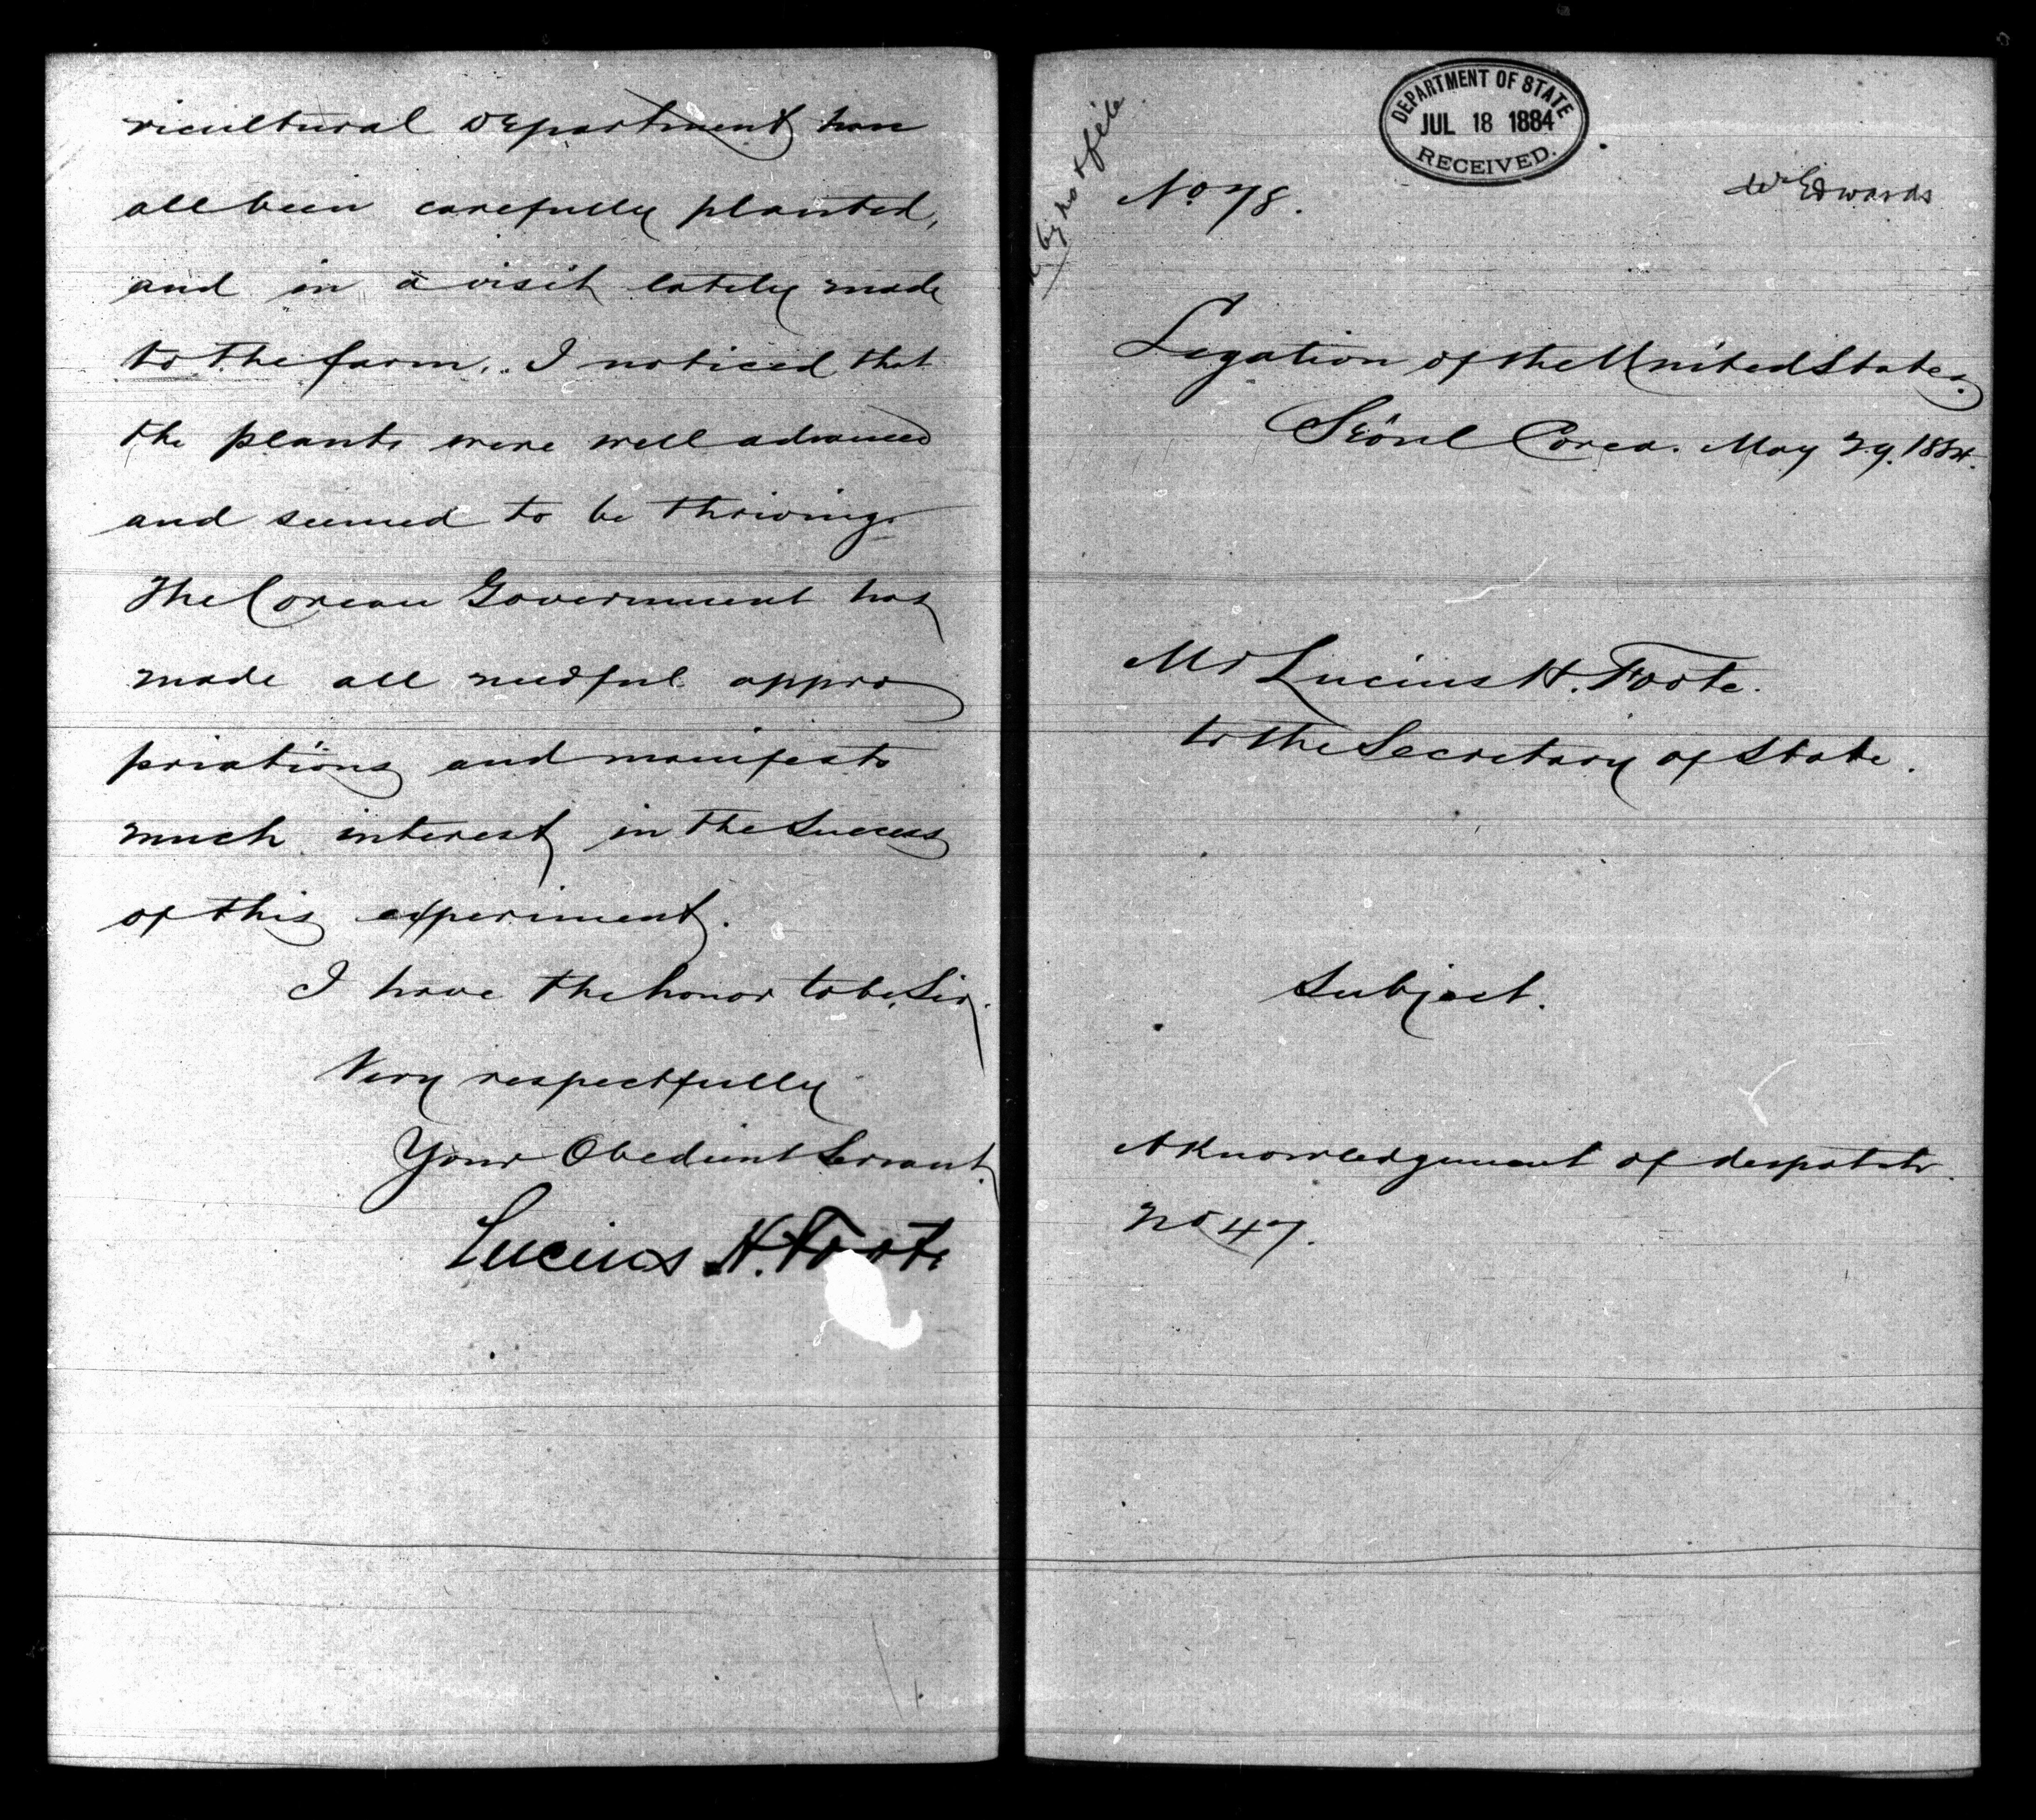 ricultural Department have
all been carefully planted,
and in a visit lately made
to the farm, I noticed that
the plants were well advanced
and seemed to be thriving.
The Corean Government has
made all needful appro
priations and manifests
much interest in the success
of this experiment.
I have the honor to be, Sir,
Very respectfully
Your Obedient Servant.
Lucius H. Foote
DEPARTMENT OF STATE
JUL 18 1884
RECEIVED.
No 78.
Mr Edwards
Legation of the United States.
Séoul Corea. May 29. 1884.
Mr Lucius H. Foote.
to the Secretary of State.
Subject.
Aknowledgement of despatch
No 47.